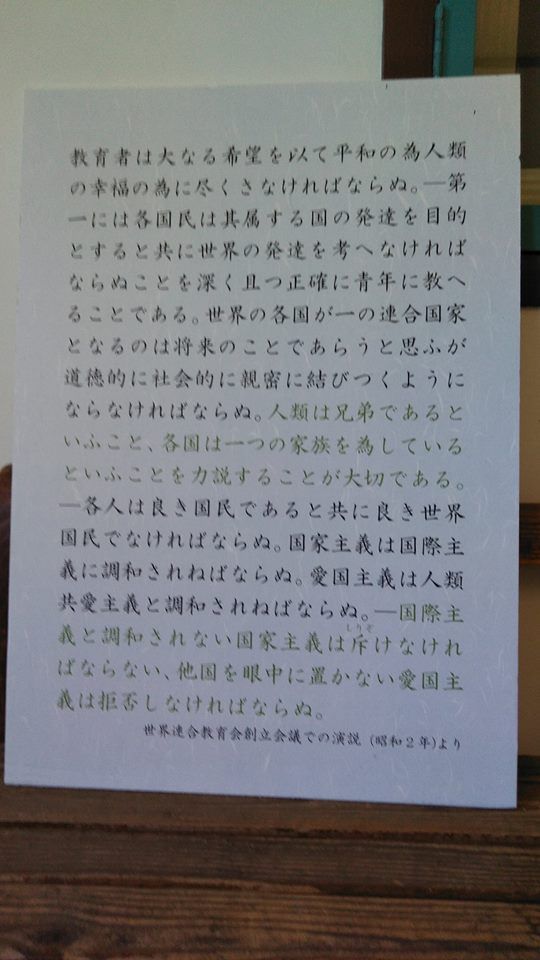 教育者は大なる希望を以て平和の為人類
の幸福の為に尽くさなければならぬ。―第
一には各国民は其属する国の発達を目的
とすると共に世界の発達を考へなければ
ならぬことを深く且つ正確に青年に教へ
ることである。世界の各国が一の連合国家
となるのは将来のことであらうと思ふが
道徳的に社会的に親密に結びつくように
ならなければならぬ。人類は兄弟であると
いふこと、各国は一つの家族を為している
といふことを力説することが大切である。
―各人は良き国民であると共に良き世界
国民でなければならぬ。国家主義は国際主
義に調和されねばならぬ。愛国主義は人類
共愛主義と調和されねばならぬ。―国際主
義と調和されない国家主義は斥けなけれ
ばならない、他国を眼中に置かない愛国主
義は拒否しなければならぬ。
世界連合教育会創立会議での演説 (昭和2年)より